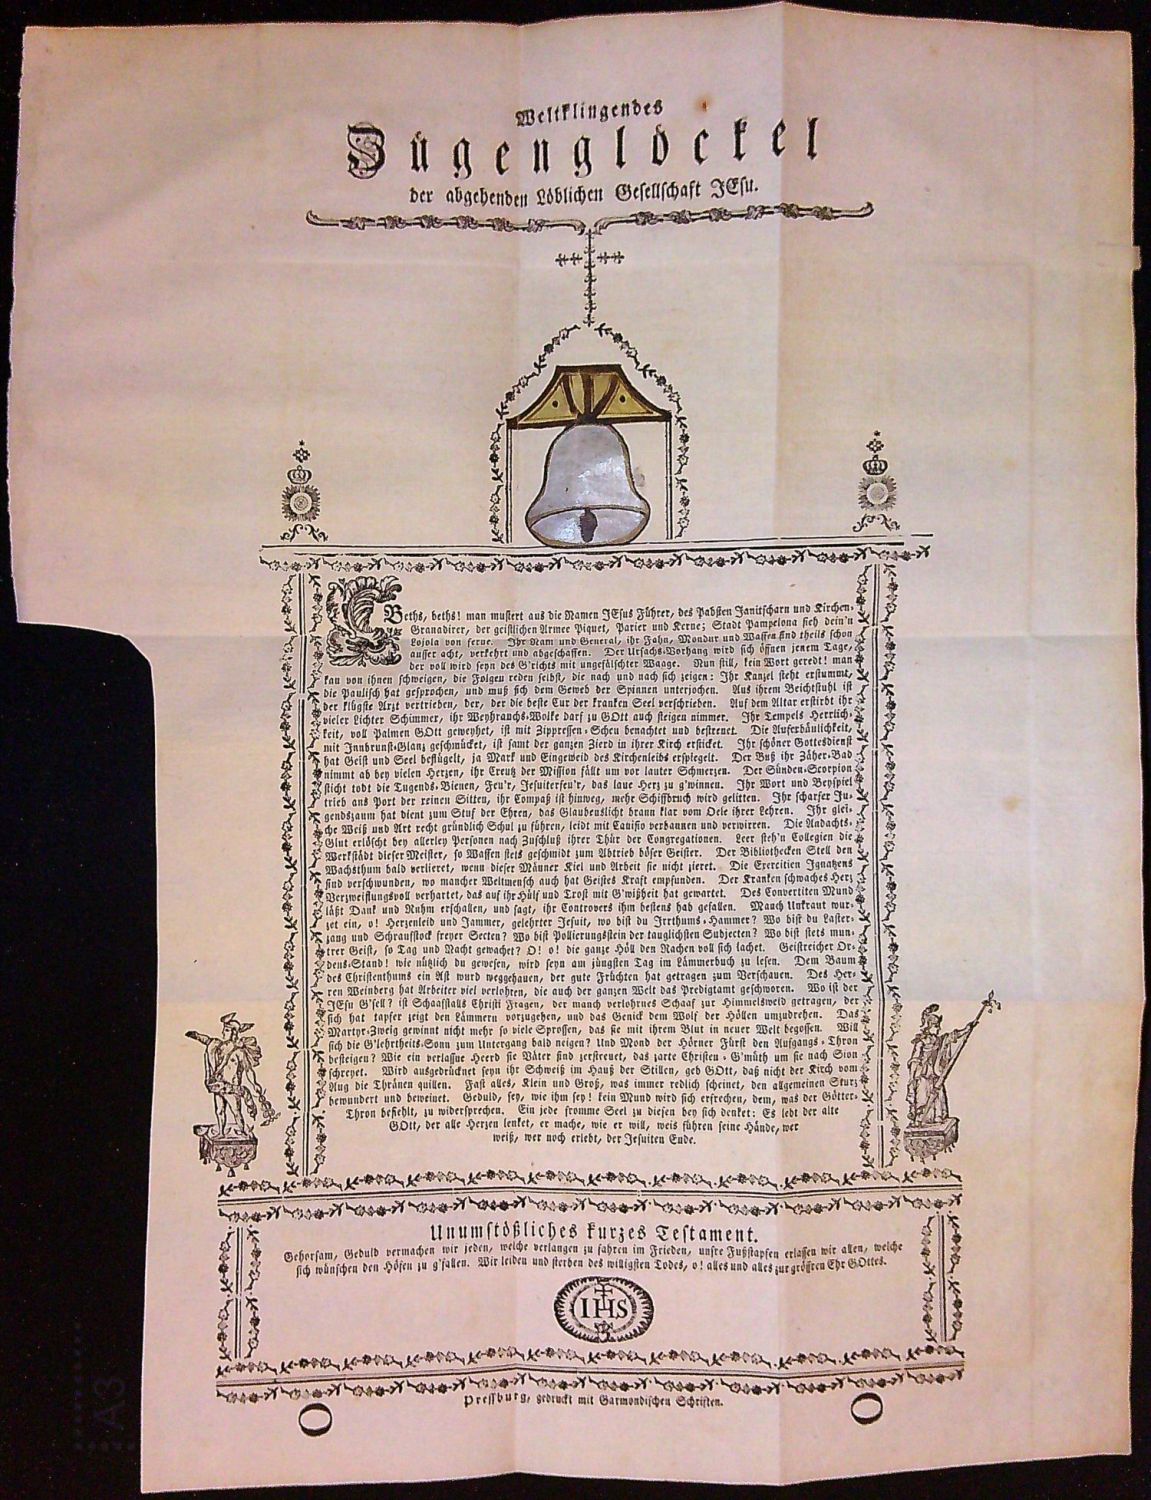 Weltklingendes
Zügenglöckel
der abgehenden Löblichen Gesellschaft JEsu.
Beths, beths! man mustert aus die Namen JEsus Führer, des Pabsten Janitscharn und Kirchen-
Granadirer, der geistlichen Armee Piquet, Parier und Kerne; Stadt Pampelona sieh dein'n
Lojola von ferne. Ihr Nam und General, ihr Fahn, Mondur und Waffen sind theils schon
ausser acht, verkehrt und abgeschaffen. Der Ursachs-Vorhang wird sich öffnen jenem Tage,
der voll wird seyn des G'richts mit ungefälschter Waage. Nun still, kein Wort geredt! man
kan von ihnen schweigen, die Folgen reden selbst, die nach und nach sich zeigen: Ihr Kanzel steht erstummt,
die Paulisch hat gesprochen, und muß sich dem Geweb der Spinnen unterjochen. Aus ihrem Beichtstuhl ist
der klügste Arzt vertrieben, der, der die beste Cur der kranken Seel verschrieben. Auf dem Altar erstirbt ihr
vieler Lichter Schimmer, ihr Weyhrauchs-Wolke darf zu GOtt auch steigen nimmer. Ihr Tempels Herrlich-
keit, voll Palmen GOtt geweyhet, ist mit Zippressen-Scheu benachtet und bestreuet. Die Auferbäulichkeit,
mit Innbrunst-Glanz geschmücket, ist samt der ganzen Zierd in ihrer Kirch ersticket. Ihr schöner Gottesdienst
hat Geist und Seel beflügelt, ja Mark und Eingeweid des Kirchenleibs erspiegelt. Der Buß ihr Zäher-Bad
nimmt ab bey vielen Herzen, ihr Creutz der Mission fällt um vor lauter Schmerzen. Der Sünden-Scorpion
sticht todt die Tugends-Bienen, Feu'r, Jesuiterfeu'r, das laue Herz zu g'winnen. Ihr Wort und Beyspiel
trieb ans Port der reinen Sitten, ihr Compaß ist hinweg, mehr Schiffbruch wird gelitten. Ihr scharfer Ju-
gendszaum hat dient zum Stuf der Ehren, das Glaubenslicht brann klar vom Oele ihrer Lehren. Ihr glei-
che Weiß und Art recht gründlich Schul zu führen, leidt mit Canisio verbannen und verwirren. Die Andachts-
Glut erlöscht bey allerley Personen nach Zuschluß ihrer Thür der Congregationen. Leer steh'n Collegien die
Werkstädt dieser Meister, so Waffen stets geschmidt zum Abtrieb böser Geister. Der Bibliothecken Stell den
Wachsthum bald verlieret, wenn dieser Männer Kiel und Arbeit sie nicht zieret. Die Exercitien Ignatzens
sind verschwunden, wo mancher Weltmensch auch hat Geistes Kraft empfunden. Der Kranken schwaches Herz
Verzweiflungsvoll verhartet, das auf ihr Hülf und Trost mit G'wißheit hat gewartet. Des Convertiten Mund
läßt Dank und Ruhm erschallen, und sagt, ihr Controvers ihm bestens hab gefallen. Manch Unkraut wur-
zet ein, o! Herzenleid und Jammer, gelehrter Jesuit, wo bist du Irrthums-Hammer? Wo bist du Laster-
zaug und Schraufstock freyer Secten? Wo bist Pollierungstein der tauglichsten Subjecten? Wo bist stets mun-
trer Geist, so Tag und Nacht gewachet? O! o! die ganze Höll den Rachen voll sich lachet. Geistreicher Or-
dens-Stand! wie nützlich du gewesen, wird seyn am jüngsten Tag im Lämmerbuch zu lesen. Dem Baum
des Christenthums ein Ast wurd weggehauen, der gute Früchten hat getragen zum Verschauen. Des Her-
ren Weinberg hat Arbeiter viel verlohren, die auch der ganzen Welt das Predigtamt geschworen. Wo ist der
JEsu G'sell? ist Schaafstalls Christi Fragen, der manch verlohrnes Schaaf zur Himmelsweid getragen, der
sich hat tapfer zeigt den Lämmern vorzugehen, und das Genick dem Wolf der Höllen umzudrehen. Das
Martyr-Zweig gewinnt nicht mehr so viele Sprossen, das sie mit ihrem Blut in neuer Welt begossen. Will
sich die G'lehrtheits-Sonn zum Untergang bald neigen? Und Mond der Hörner Fürst den Aufgangs-Thron
besteigen? Wie ein verlassne Heerd sie Väter sind zerstreuet, das zarte Christen-G'müth um sie nach Sion
schreyet. Wird ausgedrücknet seyn ihr Schweiß im Hauß der Stillen, geb GOtt, daß nicht der Kirch vom
Aug die Thränen quillen. Fast alles, Klein und Groß, was immer redlich scheinet, den allgemeinen Sturz
bewundert und beweinet. Geduld, sey, wie ihm sey! kein Mund wird sich erfrechen, dem, was der Götter-
Thron befiehlt, zu widersprechen. Ein jede fromme Seel zu diesen bey sich denket: Es lebt der alte
GOtt, der alle Herzen lenket, er mache, wie er will, weis führen seine Hände, wer
weiß, wer noch erlebt, der Jesuiten Ende.
Unumstößliches kurzes Testament.
Gehorsam, Geduld vermachen wir jeden, welche verlangen zu fahren im Frieden, unsre Fußstapfen erlassen wir allen, welche
sich wünschen den Höfen zu g'fallen. Wir leiden und sterben des willigsten Todes, o! alles und alles zur grössren Ehr GOttes.
IHS
Pressburg, gedruckt mit Garmondischen Schriften.
O O
A3